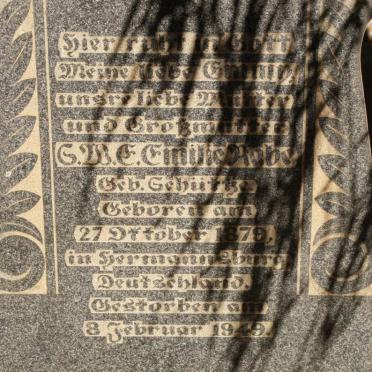 Hier ruht in Gott
Meine liebe Gattin,
unsre liebe Mutter
und Großmutter
S.M.E. Emilie Rabe
Geb. Schütze.
Geboren am
27 Oktober 1879,
in Hermannsburg
Deutschland.
Gestorben am
8 Februar 1949.